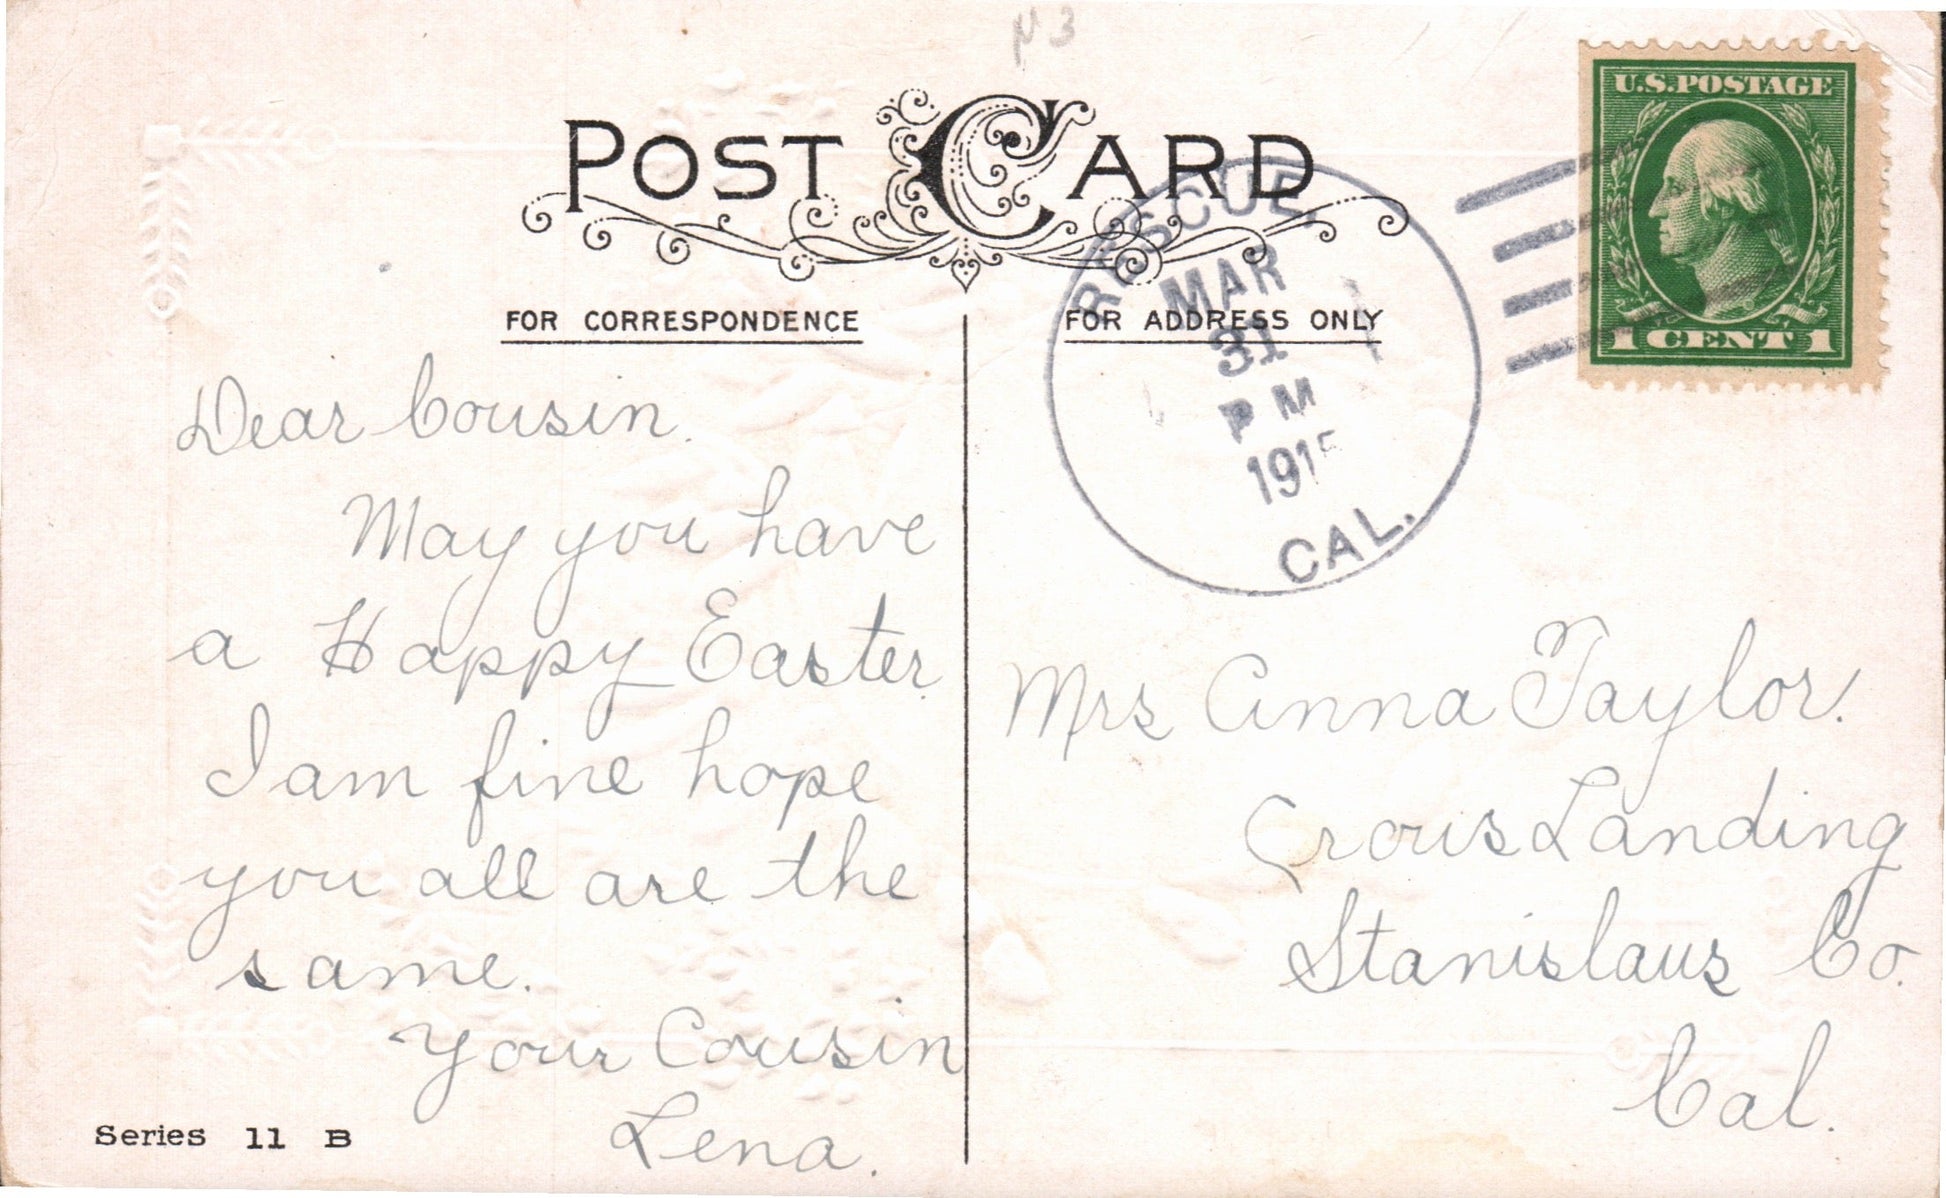 POST CARD
FOR CORRESPONDENCE
FOR ADDRESS ONLY
U.S. POSTAGE
1 CENT 1
RESCUE,
MAR
31
P M
1915
CAL.
Dear Cousin.
May you have
a Happy Easter.
I am fine hope
you all are the
same.
Your Cousin
Lena.
Mrs Anna Taylor.
Crows Landing
Stanislaus Co.
Cal.
Series 11 B